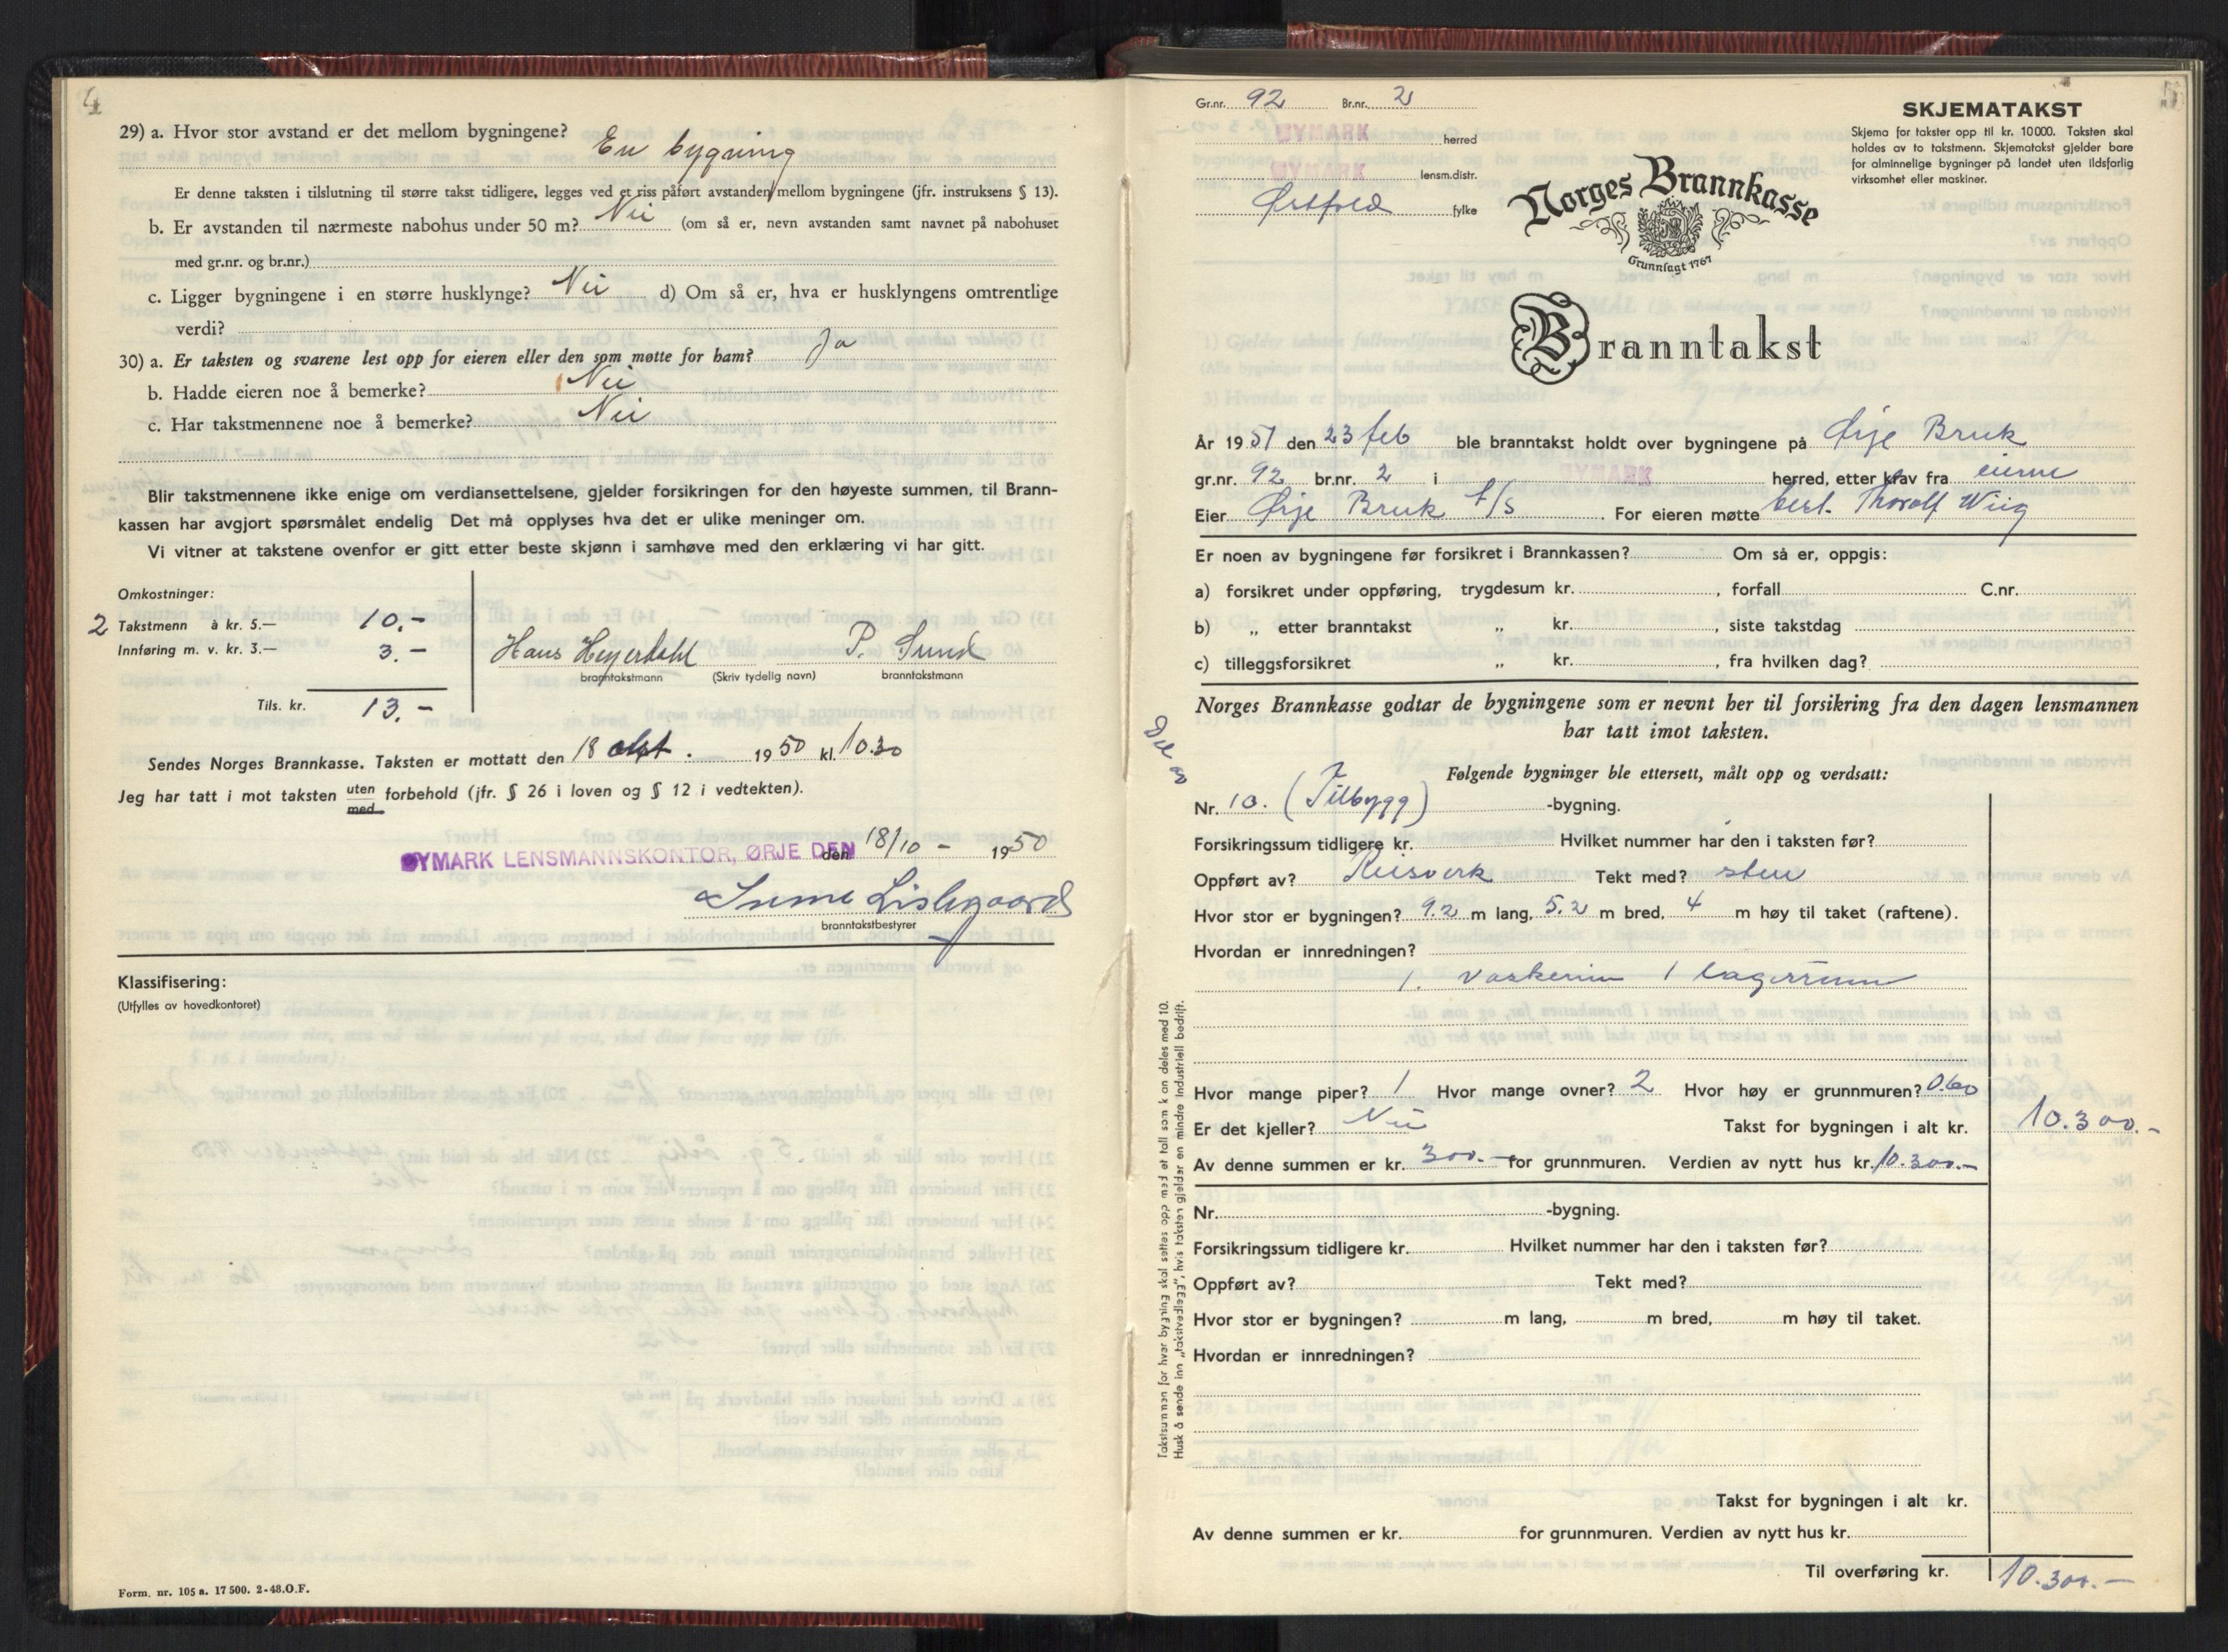 4
29) a. Hvor stor avstand er det mellom bygningene? En bygning
Er denne taksten i tilslutning til større takst tidligere, legges ved et riss påført avstanden mellom bygningene (jfr. instruksens § 13).
b. Er avstanden til nærmeste nabohus under 50 m? Nei (om så er, nevn avstanden samt navnet på nabohuset
med gr.nr. og br.nr.)
c. Ligger bygningene i en større husklynge? Nei d) Om så er, hva er husklyngens omtrentlige
verdi?
30) a. Er taksten og svarene lest opp for eieren eller den som møtte for ham? Ja
b. Hadde eieren noe å bemerke? Nei
c. Har takstmennene noe å bemerke? Nei
Blir takstmennene ikke enige om verdiansettelsene, gjelder forsikringen for den høyeste summen, til Brann-
kassen har avgjort spørsmålet endelig Det må opplyses hva det er ulike meninger om.
Vi vitner at takstene ovenfor er gitt etter beste skjønn i samhøve med den erklæring vi har gitt.
Omkostninger:
2 Takstmenn à kr. 5.— 10.-
Innføring m. v. kr. 3.— 3.-
Hans Heyerdahl P. Sund
branntakstmann (Skriv tydelig navn) branntakstmann
Tils. kr. 13.-
Sendes Norges Brannkasse. Taksten er mottatt den 18 okt. 1950 kl. 10.30
Jeg har tatt i mot taksten uten forbehold (jfr. § 26 i loven og § 12 i vedtekten).
med
ØYMARK LENSMANNSKONTOR, ØRJE DEN den 18/10 - 1950
Lislegaard
branntakstbestyrer
Klassifisering:
(Utfylles av hovedkontoret)
Form. nr. 105 a. 17 500. 2-48. O.F.
5
Gr.nr. 92 Br.nr. 2
ØYMARK herred
ØYMARK lensm.distr.
Østfold fylke
SKJEMATAKST
Skjema for takster opp til kr. 10 000. Taksten skal
holdes av to takstmenn. Skjematakst gjelder bare
for alminnelige bygninger på landet uten ildsfarlig
virksomhet eller maskiner.
Norges Brannkasse
Grunnlagt 1767
Branntakst
År 1951 den 23 feb ble branntakst holdt over bygningene på Ørje Bruk
gr.nr. 92 br.nr. 2 i ØYMARK herred, etter krav fra eierne
Eier Ørje Bruk A/S For eieren møtte best. Thoralf Wiig
Er noen av bygningene før forsikret i Brannkassen? Om så er, oppgis:
a) forsikret under oppføring, trygdesum kr. , forfall C.nr.
b) „ etter branntakst „ kr. , siste takstdag
c) tilleggsforsikret „ kr. , fra hvilken dag?
Norges Brannkasse godtar de bygningene som er nevnt her til forsikring fra den dagen lensmannen
har tatt imot taksten.
Følgende bygninger ble ettersett, målt opp og verdsatt:
Nr. 10. (Tilbygg) -bygning.
Forsikringssum tidligere kr. Hvilket nummer har den i taksten før?
Oppført av? Reisverk Tekt med? sten
Hvor stor er bygningen? 9.2 m lang, 5.2 m bred, 4 m høy til taket (raftene).
Hvordan er innredningen?
1. vaskerum 1 lagerrum
Hvor mange piper? 1 Hvor mange ovner? 2 Hvor høy er grunnmuren? 0.60
Er det kjeller? Nei Takst for bygningen i alt kr. 10.300.-
Av denne summen er kr. 300.- for grunnmuren. Verdien av nytt hus kr. 10.300.-
Nr. -bygning.
Forsikringssum tidligere kr. Hvilket nummer har den i taksten før?
Oppført av? Tekt med?
Hvor stor er bygningen? m lang, m bred, m høy til taket.
Hvordan er innredningen?
Takst for bygningen i alt kr.
Av denne summen er kr. for grunnmuren. Verdien av nytt hus kr.
Til overføring kr. 10.300.-
Takstsummen for hver bygning skal settes opp med et tall som kan deles med 10.
Husk å sende inn „takstvedlegg”, hvis taksten gjelder en mindre industriell bedrift.